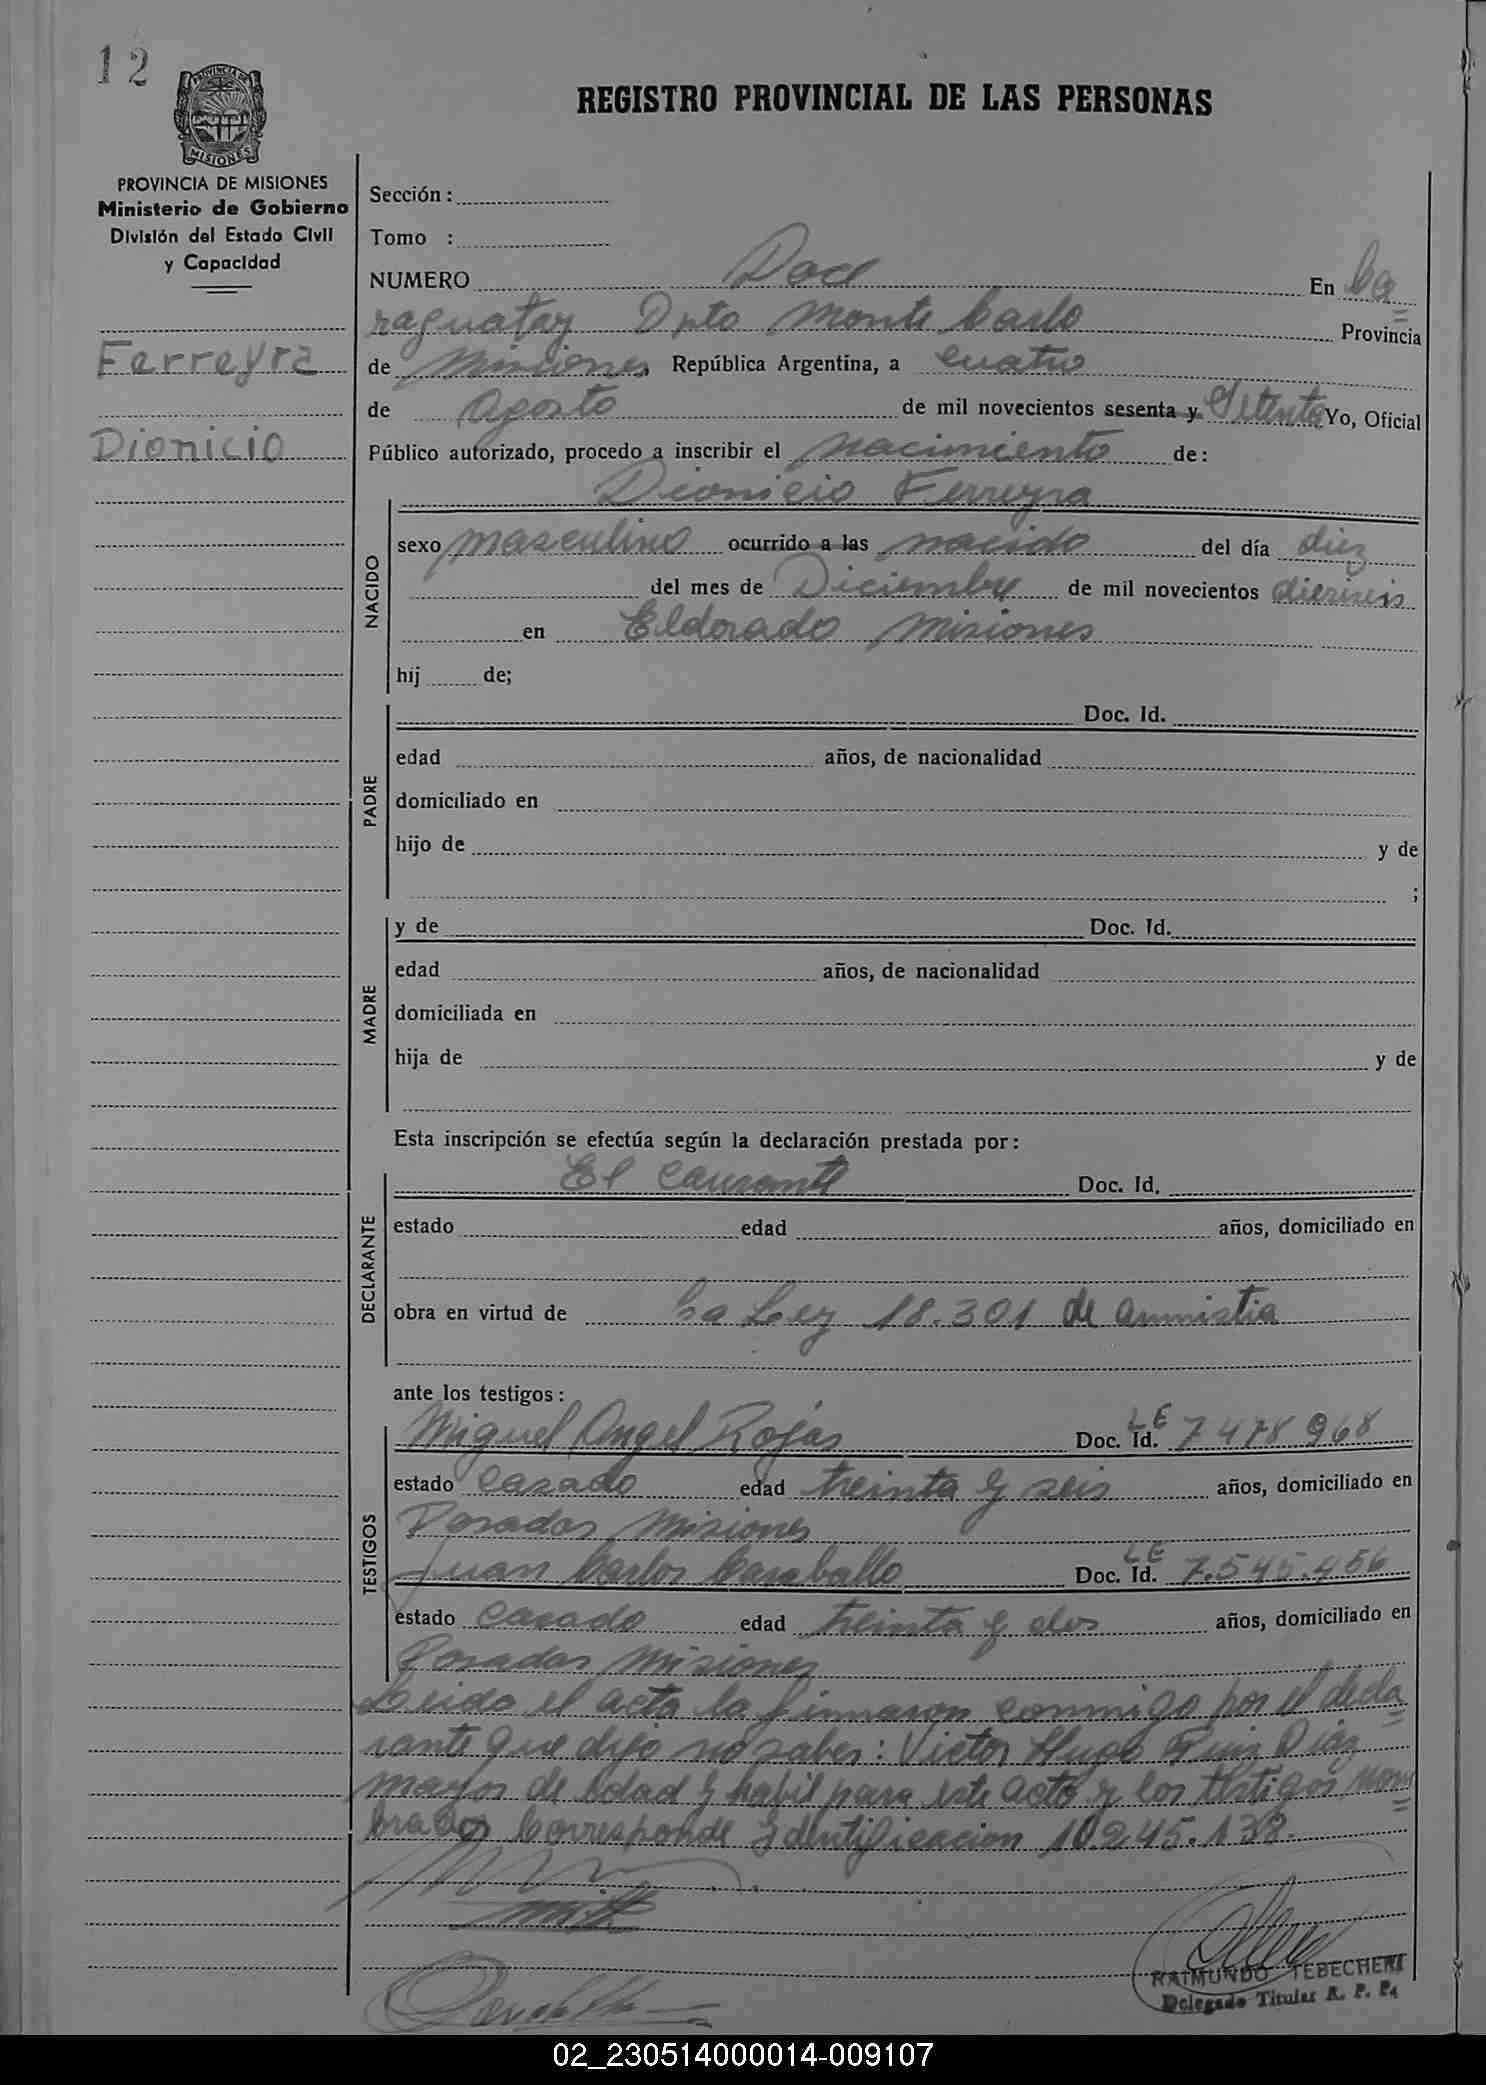 12
PROVINCIA DE MISIONES
REGISTRO PROVINCIAL DE LAS PERSONAS
PROVINCIA DE MISIONES
Ministerio de Gobierno
División del Estado Civil
y Capacidad
Ferreyra
Dionicio
Sección:
Tomo :
NUMERO Doce En Ca
raguatay Dpto Monte Carlo Provincia
de Misiones, República Argentina, a cuatro
de Agosto de mil novecientos sesenta y Setenta Yo, Oficial
Público autorizado, procedo a inscribir el nacimiento de:
Dionicio Ferreyra
NACIDO
sexo masculino ocurrido a las nacido del día diez
del mes de Diciembre de mil novecientos dieciseis
en Eldorado Misiones
hij de;
PADRE
Doc. Id.
edad años, de nacionalidad
domiciliado en
hijo de y de
;
MADRE
y de Doc. Id.
edad años, de nacionalidad
domiciliada en
hija de y de
Esta inscripción se efectúa según la declaración prestada por:
DECLARANTE
El causante Doc. Id.
estado edad años, domiciliado en
obra en virtud de La Ley 18.301 de amnistia
ante los testigos:
TESTIGOS
Miguel Angel Rojas Doc. Id. LE 7478968
estado casado edad treinta y seis años, domiciliado en
Posadas Misiones
Juan Carlos Caraballo Doc. Id. LE 7.545.456
estado casado edad treinta y dos años, domiciliado en
Posadas Misiones
Leido el acta la firmaron conmigo por el decla
rante que dijo no saber: Victor Hugo Ruiz Diaz
mayor de edad y habil para este acto y los testigos nom
brados Corresponde Identificacion 10.245.132.
RAIMUNDO TEBECHERI
Delegado Titular R. P. P.
02_230514000014-009107